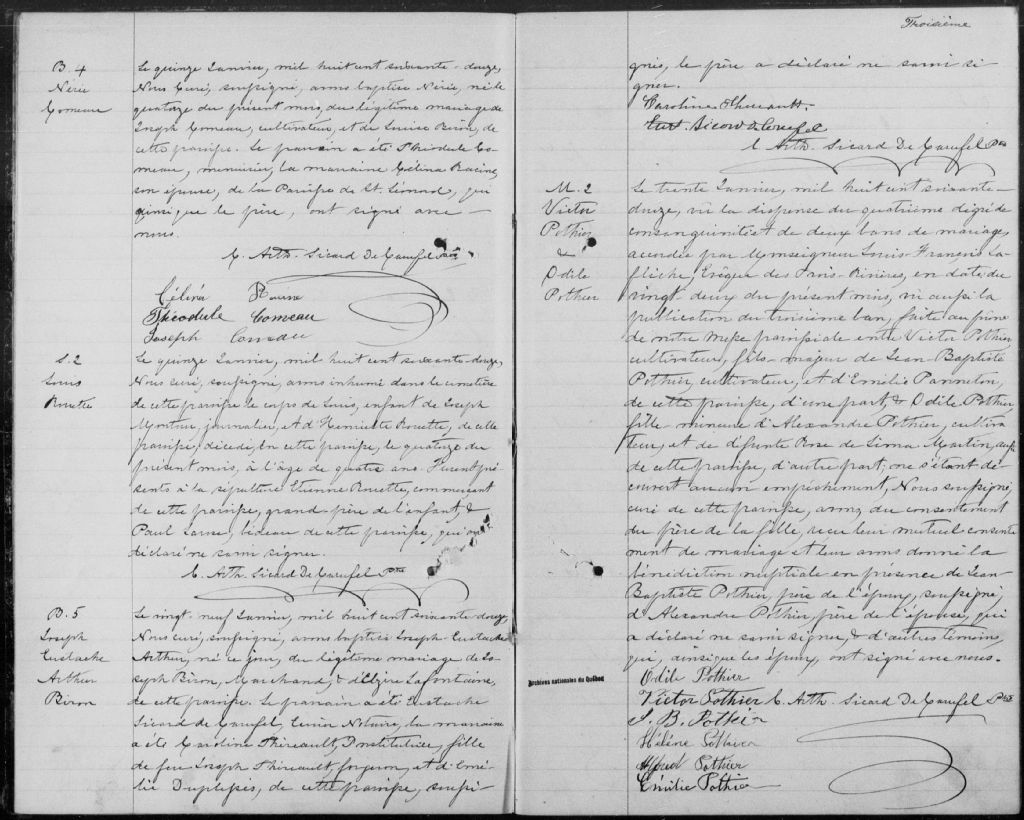 B. 4
Nérée
Comeau
Le quinze Janvier, mil huit cent soixante-douze,
Nous Curé, soussigné, avons baptisé Nérée, né le
quatorze du présent mois, du légitime mariage de
Joseph Comeau, cultivateur, et de Louise Biron, de
cette paroisse. Le parrain a été Théodule Co-
meau, menuisier, la marraine Célina Racine
son épouse, de la Paroisse de St. Léonard, qui
ainsi que le père, ont signé avec
nous.
C. Arth. Sicard De Carufel Ptre
Célina
Théodule Comeau
Joseph Comeau
S. 2
Louis
Rouette
Le quinze Janvier, mil huit cent soixante-douze,
Nous curé, soussigné, avons inhumé dans le cimetière
de cette paroisse le corps de Louis, enfant de Joseph
journalier, et d'Henriette Rouette, de cette
paroisse, décédé, en cette paroisse, le quatorze du
présent mois, à l'âge de quatre ans. Furent pré-
sents à la sépulture Etienne Rouette, commerçant
de cette paroisse, grand père de l'enfant, &
Paul bédeau de cette paroisse, qui ont
déclaré ne savoir signer.
C. Arth. Sicard De Carufel Ptre
B. 5
Joseph
Eustache
Arthur
Biron
Le vingt-neuf Janvier, mil huit cent soixante-douze,
Nous curé, soussigné, avons baptisé Joseph-Eustache
Arthur, né ce jour, du légitime mariage de Jo-
seph Biron, Marchand, & d'Elzire Lafontaine,
de cette paroisse. Le parrain a été Eustache
Sicard de Carufel, Notaire, la marraine
a été Caroline Thireault, Institutrice, fille
de feu Joseph Thireault, forgeron, et d'Emé-
lie Duplessis, de cette paroisse, soussi-
Troisième
gnés, le père a déclaré ne savoir si-
gner.
Caroline
Eust. Sicard de Carufel
C. Arth. Sicard De Carufel Ptre
M. 2
Victor
Pothier
&
Odile
Pothier
Le trente Janvier, mil huit cent soixante-
douze, vu la dispense du quatrième dégré de
consanguinité et de deux bans de mariage,
accordée par Monseigneur Louis-François La-
flèche, Evêque des Trois-Rivières, en date du
vingt-deux du présent mois, vu aussi la
publication du troisième ban, faite au prône
de notre messe paroissiale entre Victor Pothier,
cultivateur, fils-majeur de Jean-Baptiste
Pothier, cultivateur, et d'Emélie Panneton,
de cette paroisse, d'une part, & Odile Pothier
fille-mineure d'Alexandre Pothier, cultiva-
teur, et de défunte Rose de Lima Martin, aussi
de cette paroisse, d'autre part; ne s'étant dé-
couvert aucun empêchement, Nous soussigné,
curé de cette paroisse, avons, du consentement
du père de la fille, reçu leur mutuel consente
ment de mariage et leur avons donné la
bénédiction nuptiale en présence de Jean-
Baptiste Pothier, père de l'époux, soussigné,
d'Alexandre Pothier, père de l'épouse, qui
a déclaré ne savoir signer, & d'autres témoins,
qui, ainsi que les époux, ont signé avec nous.
Archives nationales du Québec
Odile Pothier
Victor Pothier C. Arth. Sicard De Carufel Ptre
J. B. Pothier
Hélène Pothier
Pothier
Émélie Pothier